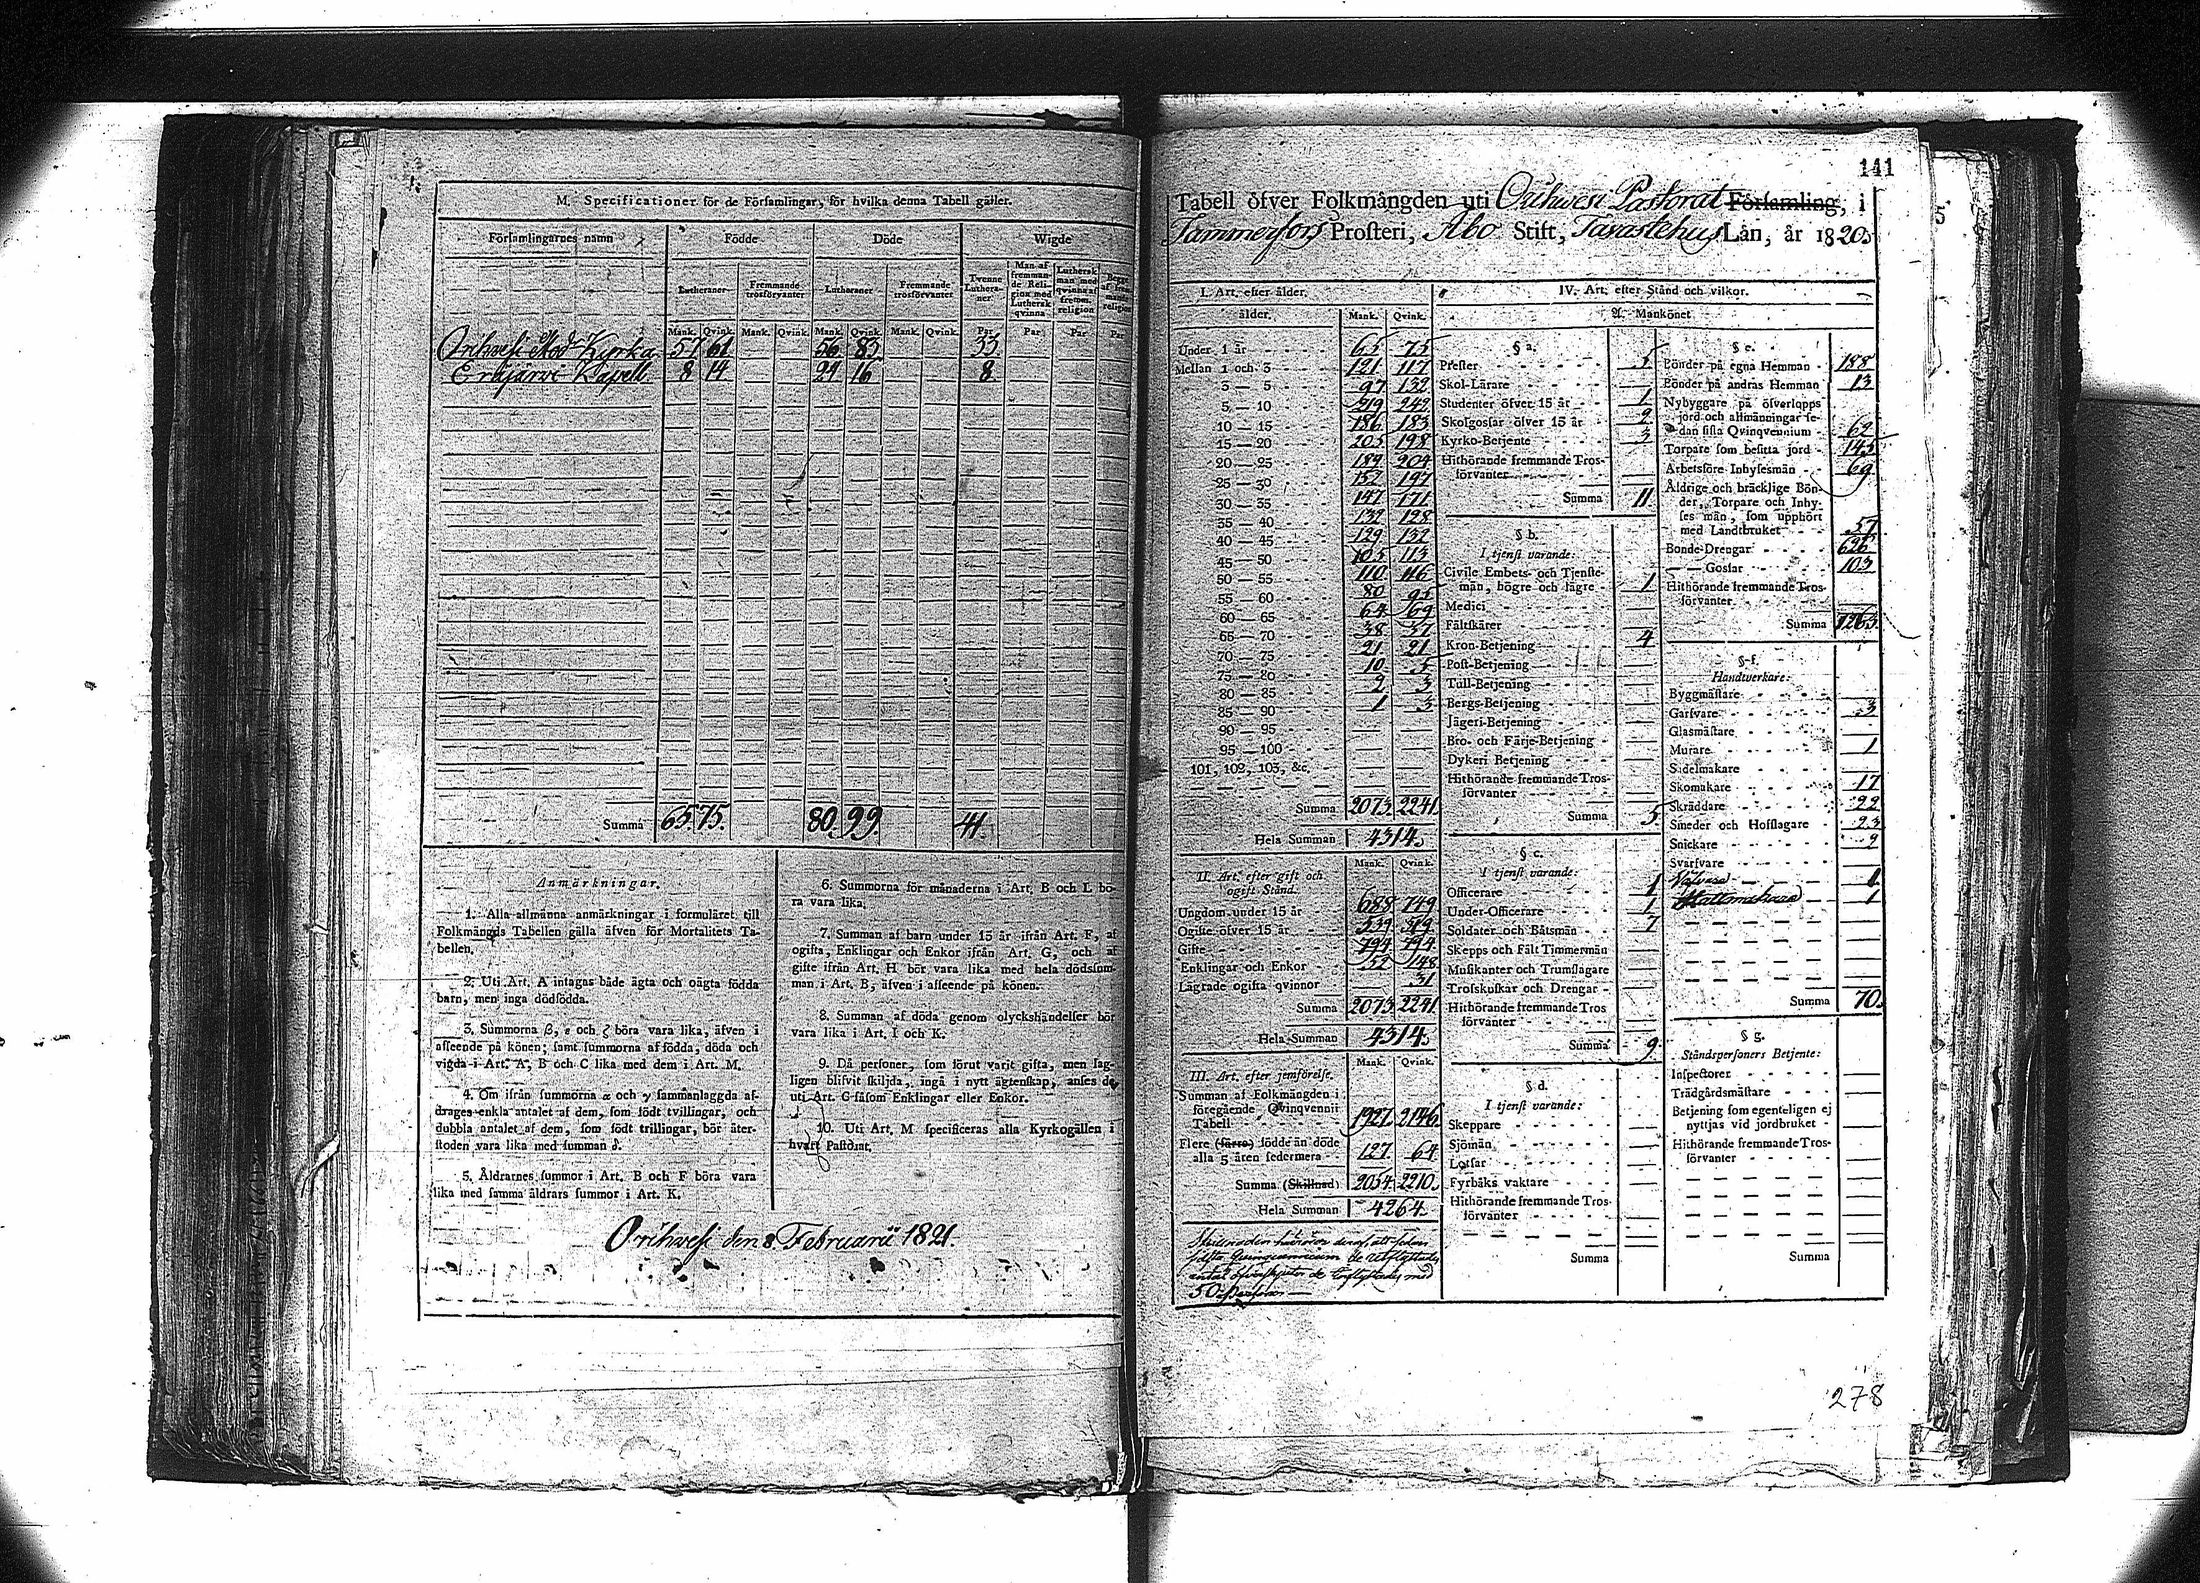 M. Specificationer för de Församlingar, för hvilka denna Tabell gäller.
Församlingarnes namn Födde Döde Wigde
Lutheraner Fremmande trosförvanter Lutheraner Fremmande trosförvanter Tvenne Lutheraner Man af fremmande Religion med Luthersk qvinna Luthersk man med qvinna af fremm. religion
Mank. Qvink. Mank. Qvink. Mank. Qvink. Mank. Qvink. Par Par Par Par
Orihvesi Mod. Kyrka 57 61 56 83 33
Erajärvi Kapell. 8 14 24 16 8
Summa 65. 75. 80. 99. 41.
Anmärkningar.
1. Alla allmänna anmärkningar i formuläret till
Folkmängds Tabellen gälla äfven för Mortalitets Ta-
bellen.
2. Uti Art. A intagas både ägta och oägta födda
barn, men inga dödfödda.
3. Summorna β, ε och ζ böra vara lika, äfven i
afseende på könen; samt summorna af födda, döda och
vigda i Art. A, B och C lika med dem i Art. M.
4. Om ifrån summorna α och γ sammanlaggda af-
drages enkla antalet af dem, som födt tvillingar, och
dubbla antalet af dem, som födt trillingar, bör åter-
stoden vara lika med summan δ.
5. Åldrarnes summor i Art. B och F böra vara
lika med samma åldrars summor i Art. K.
6. Summorna för månaderna i Art. B och L bö-
ra vara lika.
7. Summan af barn under 15 år ifrån Art. F, af
ogifta, Enklingar och Enkor ifrån Art. G, och af
gifte ifrån Art. H bör vara lika med hela dödssum-
man i Art. B, äfven i afseende på könen.
8. Summan af döda genom olyckshändelser bör
vara lika i Art. I och K.
9. Då personer, som förut varit gifta, men lag-
ligen blifvit skiljda, ingå i nytt ägtenskap, anses de
uti Art. G såsom Enklingar eller Enkor.
10. Uti Art. M specificeras alla Kyrkogällen i
hvart Pastorat.
Orihvesi den 8. Februarii 1821.
141
Tabell öfver Folkmängden uti Orihwesi Pastorat Församling, i
Tammerfors Prosteri, Åbo Stift, Tavastehus Län, år 1820.
I. Art. efter ålder.
ålder. Mank. Qvink.
Under 1 år 65 75
Mellan 1 och 3 121 117
3 — 5 97 132
5 — 10 219 242
10 — 15 186 183
15 — 20 205 198
20 — 25 189 204
25 — 30 152 197
30 — 35 147 171
35 — 40 132 128
40 — 45 129 132
45 — 50 105 113
50 — 55 110 116
55 — 60 80 95
60 — 65 64 69
65 — 70 38 37
70 — 75 21 21
75 — 80 10 5
80 — 85 2 3
85 — 90 1 3
90 — 95
95 — 100
101, 102, 103, &c.
Summa 2073. 2241
Hela Summan 4314.
Mank. Qvink.
II. Art. efter gift och
ogift Stånd.
Ungdom under 15 år 688 749
Ogifte öfver 15 år 539 519
Gifte 794 794
Enklingar och Enkor 52 148
Lägrade ogifta qvinnor 31
Summa 2073 2241
Hela Summan 4314.
Mank. Qvink.
III. Art. efter jemförelse.
Summan af Folkmängden i
föregående Qvinqvennii
Tabell 1927. 2146.
Flere (färre) födde än döde
alla 5 åren sedermera 127 64
Summa (Skillnad) 2054. 2210.
Hela Summan 4264.
50 personer
IV. Art. efter Stånd och vilkor.
A. Mankönet
§ a.
Prester 5
Skol-Lärare
Studenter öfver 15 år 1
Skolgossar öfver 15 år 2
Kyrko-Betjente 3
Hithörande fremmande Tros-
förvanter
Summa 11
§ b.
I tjenst varande:
Civile Embets- och Tjenste-
män, högre och lägre 1
Medici
Fältskärer
Kron-Betjening 4
Post-Betjening
Tull-Betjening
Bergs-Betjening
Jägeri-Betjening
Bro- och Färje-Betjening
Dykeri Betjening
Hithörande fremmande Tros-
förvanter
Summa 5
§ c.
I tjenst varande:
Officerare 1
Under-Officerare 1
Soldater och Båtsmän 7
Skepps och Fält Timmermän
Musikanter och Trumslagare
Trosskuskar och Drengar
Hithörande fremmande Tros
förvanter
Summa 9
§ d.
I tjenst varande:
Skeppare
Sjömän
Lotsar
Fyrbåks vaktare
Hithörande fremmande Tros
förvanter
Summa
§ e.
Bönder på egna Hemman 188
Bönder på andras Hemman 13
Nybyggare på öfverlopps
jord och allmänningar se-
dan sista Qvinqvennium 62
Torpare som besitta jord 145
Arbetsföre Inhysesmän 69
Åldrige och bräcklige Bön-
der, Torpare och Inhy-
ses män, som upphört
med Landtbruket 57
Bonde-Drengar 626
— Gossar 103
Hithörande fremmande Tros-
förvanter
Summa 1263.
§ f.
Handtverkare:
Byggmästare
Garfvare 3
Glasmästare
Murare 1
Sadelmakare
Skomakare 17
Skräddare 22
Smeder och Hofslagare 23
Snickare 2
Svarfvare
1
Hattmakare 1
Summa 70.
§ g.
Ståndspersoners Betjente:
Inspectorer
Trädgårdsmästare
Betjening som egenteligen ej
nyttjas vid jordbruket
Hithörande fremmande Tros-
förvanter
Summa
278